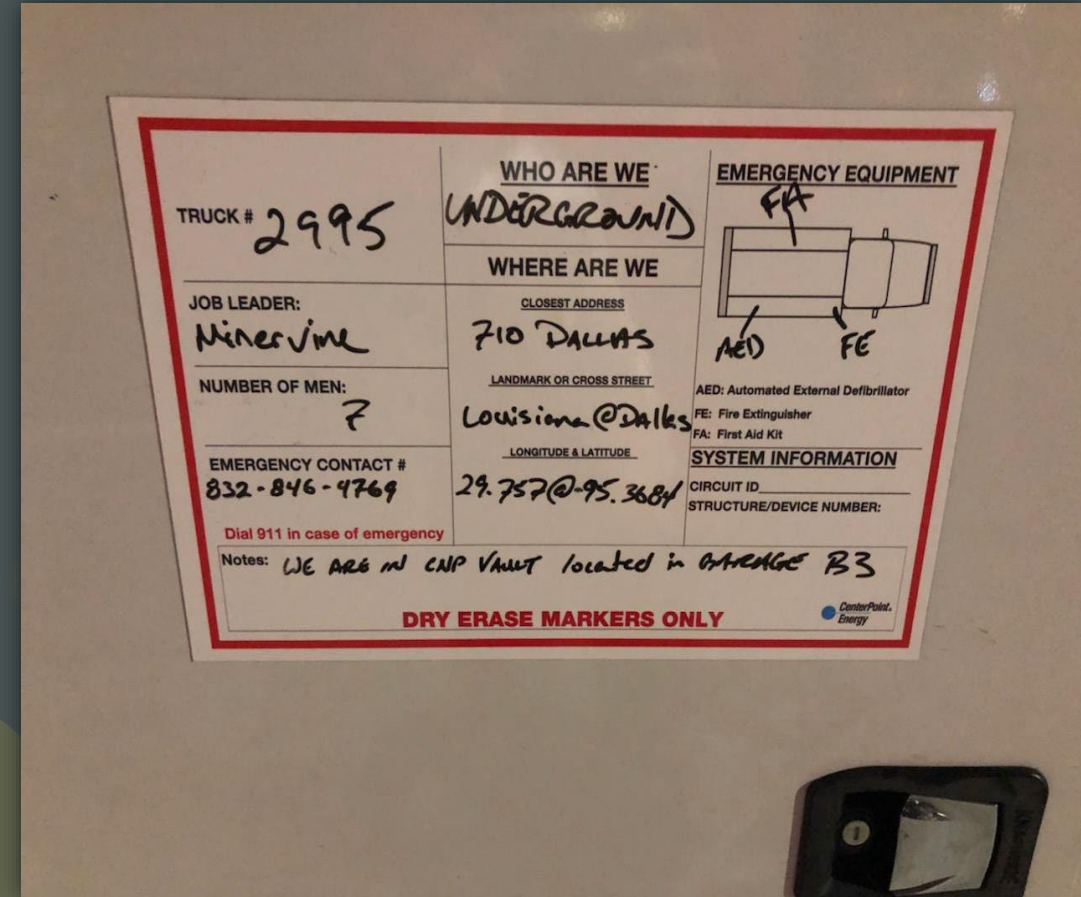 TRUCK # 2995
JOB LEADER:
Minervine
NUMBER OF MEN:
7
EMERGENCY CONTACT #
832-846-4769
Dial 911 in case of emergency
WHO ARE WE
UNDERGROUND
WHERE ARE WE
CLOSEST ADDRESS
710 DALLAS
LANDMARK OR CROSS STREET
Louisiana @ DAllas
LONGITUDE & LATITUDE
29.757@-95.3684
EMERGENCY EQUIPMENT
FA
AED FE
AED: Automated External Defibrillator
FE: Fire Extinguisher
FA: First Aid Kit
SYSTEM INFORMATION
CIRCUIT ID
STRUCTURE/DEVICE NUMBER:
Notes: WE ARE IN CNP VAULT located in GARAGE B3
DRY ERASE MARKERS ONLY
CenterPoint.
Energy